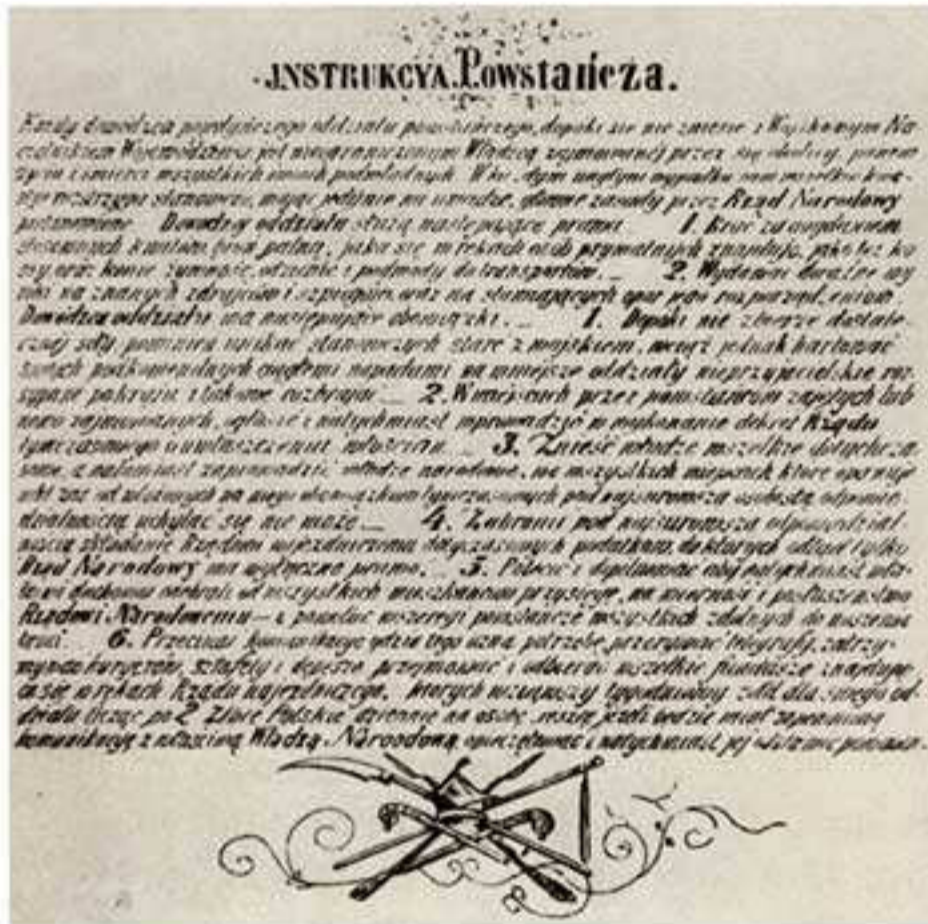 INSTRUKCYA Powstańcza.
Każdy dowódca pojedyńczego oddziału powstańczego, dopóki się nie zniesie z Wojskowym Na-
czelnikiem Województwa jest nieograniczonym Władzcą zajmowanej przez się okolicy, panem
życia i śmierci wszystkich swoich podwładnych. W tym względzie wszelkie
rozstrzyga stanowczo, mając jedynie na uwadze, główne zasady przez Rząd Narodowy
postanowione. Dowódcy oddziału służą następujące prawa 1. Brać za
broń palną, jaka się w rękach osób prywatnych znajduje, jako też ko-
sy oraz konie, żywność, odzienie i podwody do transportów. 2. Wydawać doraźne wy-
roki na znanych zdrajców i szpiegów oraz na stawiających opór jego rozporządzeniom.
Dowódca oddziału ma następujące obowiązki. 1. Dopóki nie zbierze dostate-
cznej siły powinien unikać stanowczych starć z wojskiem, wciąż jednak hartować
swoich podkomendnych ciągłemi napadami na mniejsze oddziały nieprzyjacielskie roz-
sypane po kraju i takowe rozbrajać. 2. W miejscach przez powstańców zajętych lub
nowo zajmowanych, ogłosić i natychmiast wprowadzić w wykonanie dekret Rządu
tymczasowego o uwłaszczeniu włościan. 3. Znieść władze wszelkie dotychcza-
sowe, a natomiast zaprowadzić władze narodowe, we wszystkich miejscach które opanuje
nikt zaś od włożonych na niego obowiązków tymczasowych pod najsurowszą osobistą odpowie-
dzialnością uchylać się nie może. 4. Zabronić pod najsurowszą odpowiedzial-
nością składanie Rządowi najezdniczemu dotychczasowych podatków, do których odtąd tylko
Rząd Narodowy ma wyłączne prawo. 5. Polecić i dopilnować aby natychmiast
duchowni odebrali od wszystkich mieszkańców przysięgę, na wierność i posłuszeństwo
Rządowi Narodowemu i powołać wszystkich zdolnych do noszenia
broni. 6. Przecinać komunikacye gdzie tego uzna potrzebę, przerywać telegrafy, zatrzy-
mywać kuryerów, sztafety i depesze przejmować i odbierać wszelkie fundusze znajdują-
ce się w rękach Rządu najezdniczego, których wziąwszy tygodniowy żołd dla swego od-
działu licząc po 2 Złote Polskie dziennie na osobę, resztę jeżeli będzie miał zapewnioną
komunikacyę z właściwą Władzą Narodową, opieczętować i natychmiast jej